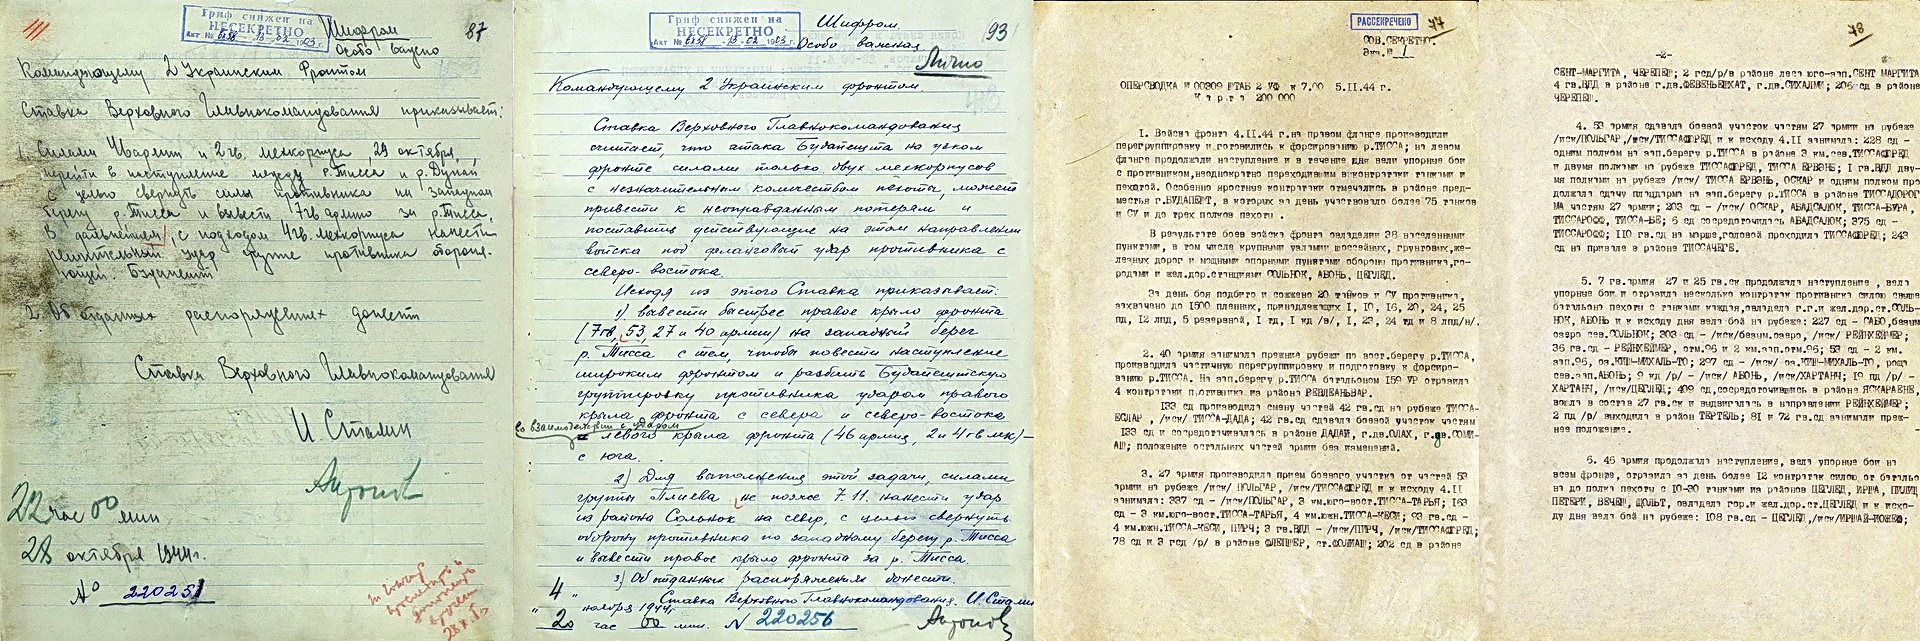 Гриф снижен на
НЕСЕКРЕТНО
Шифром
87
Особо важно
Командующему 2 Украинским Фронтом
Ставка Верховного Главнокомандования приказывает:
1. Силами 46 армии и 2 гв. мехкорпуса, 29 октября,
перейти в наступление между р. Тисса и р. Дунай
с целью свернуть силы противника на западном
берегу р. Тисса и вывести 7 гв. армию за р. Тисса,
В дальнейшем, с подходом 4 гв. мехкорпуса нанести
решительный удар группе противника оборон-
яющей Будапешт
2. Об отданных распоряжениях донести
Ставка Верховного Главнокомандования
И. Сталин
Антонов
22 час 00 мин
28 октября 1944г.
№ 220251
Гриф снижен на
НЕСЕКРЕТНО
Шифром
93
Особо важная
Лично
Командующему 2 Украинским фронтом
Ставка Верховного Главнокомандования
считает, что атака Будапешта на узком
фронте силами только двух мехкорпусов
с незначительным количеством пехоты, может
привести к неоправданным потерям и
поставить действующие на этом направлении
войска под фланговый удар противника с
северо-востока
Исходя из этого Ставка приказывает:
1) вывести быстрее правое крыло фронта
(7гв, 53, 27 и 40 армии) на западный берег
р. Тисса с тем, чтобы повести наступление
широким фронтом и разбить Будапештскую
группировку противника ударом правого
крыла фронта с севера и северо-востока
во взаимодействии с ударом
левого крыла фронта (46 армия, 2 и 4 гв мк) -
с юга.
2) Для выполнения этой задачи, силами
группы Плиева не позже 7.11. нанести удар
из района Сольнок на север, с целью свернуть
оборону противника по западному берегу р. Тисса
и вывести правое крыло фронта за р. Тисса.
3) Об отданных распоряжениях донести.
Ставка Верховного Главнокомандования. И. Сталин
"4" ноября 1944г.
"20 час 00 мин. № 220256
Антонов
РАССЕКРЕЧЕНО
77
СОВ.СЕКРЕТНО.
Экз.№ 1
ОПЕРСВОДКА № 00309 ШТАБ 2 УФ к 7.00 5.11.44 г.
Карта 200 000
1. Войска фронта 4.11.44 г.на правом фланге производили
перегруппировку и готовились к форсированию р.ТИССА; на левом
фланге продолжали наступление и в течение дня вели упорные бои
с противником,неоднократно переходившим в контратаки танками и
пехотой. Особенно яростные контратаки отмечались в районе пред-
местья г.БУДАПЕШТ, в которых за день участвовало более 75 танков
и СУ и до трех полков пехоты.
В результате боев войска фронта овладели 38 населенными
пунктами, в том числе крупными узлами шоссейных, грунтовых,же-
лезных дорог и мощными опорными пунктами обороны противника,го-
родами и жел.дор.станциями СОЛЬНОК, АБОНЬ, ЦЕГЛЕД.
За день боя подбито и сожжено 20 танков и СУ противника,
захвачено до 1500 пленных, принадлежащих 1, 10, 16, 20, 24, 25
пд, 12 лпд, 5 резервной, 1 тд, 1 кд /в/, 1, 23, 24 тд и 8 лпд/н/.
2. 40 армия занимала прежние рубежи по вост.берегу р.ТИССА,
производила частичную перегруппировку и подготовку к форсиро-
ванию р.ТИССА. На зап.берегу р.ТИССА батальоном 159 УР отразила
4 контратаки противника из района РЕВЛЕАНЬВАР.
133 сд производила смену частей 42 гв.сд на рубеже ТИССА-
ЕСЛАР, /иск/ТИССА-ДАДА; 42 гв.сд сдавала боевой участок частям
133 сд и сосредоточивалась в районе ДАДАИ, г.дв.ОЛАХ, г.дв.СОМИ-
АШ; положение остальных частей армии без изменений.
3. 27 армия производила прием боевого участка от частей 53
армии на рубеже /иск/ ПОЛЬГАР, /иск/ТИССАФЮРЕД и к исходу 4.11
занимала: 337 сд - /иск/ПОЛЬГАР, 3 км.юго-вост.ТИССА-ТАРЬЯ; 163
сд - 3 км.юго-вост.ТИССА-ТАРЬЯ, 4 км.южн.ТИССА-КЕСИ; 93 гв.сд -
4 км.южн.ТИССА-КЕСИ, ПИРЧ; 3 гв.ВДД - /иск/ПИРЧ, /иск/ТИССАФЮРЕД;
78 сд и 3 гсд /р/ в районе ФЛЕПШЕР, ст.ФОЛИАШ; 202 сд в районе
78
-2-
СЕНТ-МАРГИТА, ЧЕРЕПЕШ; 2 гсд/р/в районе леса юго-зап.СЕНТ МАРГИТА
4 гв.ВДД в районе г.дв.ФЕВЕНЬЕШХАТ, г.дв.СИХАЛМИ; 206 сд в районе
ЧЕРЕПЕШ.
4. 53 армия сдавала боевой участок частям 27 армии на рубеже
/иск/ПОЛЬГАР, /иск/ТИССАФЮРЕД и к исходу 4.11 занимала: 228 сд -
одним полком на зап.берегу р.ТИССА в районе 3 км.сев.ТИССАФЮРЕД
и двумя полками на рубеже ТИССАФЮРЕД, ТИССА ЕРВЭНЬ; 1 гв.ВДД дву-
мя полками на рубеже /иск/ ТИССА ЕРВЭНЬ, ОСКАР и одним полком про
должала сдачу плацдарма на зап.берегу р.ТИССА в районе ТИССАДОРОГ
МА частям 27 армии; 203 сд - /иск/ ОСКАР, АБАДСАЛОК, ТИССА-БУРА,
ТИССАРОФФ, ТИССА-БЕ; 6 сд сосредоточилась АБАДСАЛОК; 375 сд -
ТИССАРОФФ; 110 гв.сд на марше,головой проходила ТИССАФЮРЕД; 243
сд на привале в районе ТИССАЧЕГЕ.
5. 7 гв.армия 27 и 25 гв.ск продолжала наступление, вела
упорные бои и отразила несколько контратак противника силою свыше
батальона пехоты с танками каждая,овладела г.г.и жел.дор.ст.СОЛЬ-
НОК, АБОНЬ и к исходу дня вела бой на рубеже: 227 сд - САБО,безым
озеро сев.СОЛЬНОК; 303 сд - /иск/безым.озеро, /иск/ РЕЙНХЕЙМЕР;
36 гв.сд - РЕЙНХЕЙМЕР, отм.96 и 2 км.зап.отм.96; 53 сд - 2 км.
зап.96, оз.КИШ-МИХАЛЬ-ТО; 297 сд - /иск/ оз.КИШ-МИХАЛЬ-ТО, роща
сев.зап.АБОНЬ; 9 кд /р/ - /иск/ АБОНЬ, /иск/ХАРТАНЧ; 19 пд /р/ -
ХАРТАНЧ, /иск/ЦЕГЛЕД; 409 сд,сосредоточившись в районе ЯСКАРАЕНЕ,
вошла в состав 27 гв.ск и выдвигалась в направлении РЕЙНХЕЙМЕР;
2 пд /р/ выходила в район ТЕРТЕЛЬ; 81 и 72 гв.сд занимали преж-
нее положение.
6. 46 армия продолжала наступление, вела упорные бои на
всем фронте, отразила за день более 12 контратак силою от батальо
на до полка пехоты с 10-30 танками из районов ЦЕГЛЕД, ИРША, ПИЛИЦ
ПЕТЕРИ, ВЕЧЕШ, ШОЛЬТ, овладела гор.и жел.дор.ст.ЦЕГЛЕД и к исхо-
ду дня вела бой на рубеже: 108 гв.сд - ЦЕГЛЕД,/иск/ИРШАЙ-ИОЖЕФ;